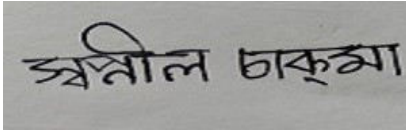 স্বপ্নীল চাক্‌মা